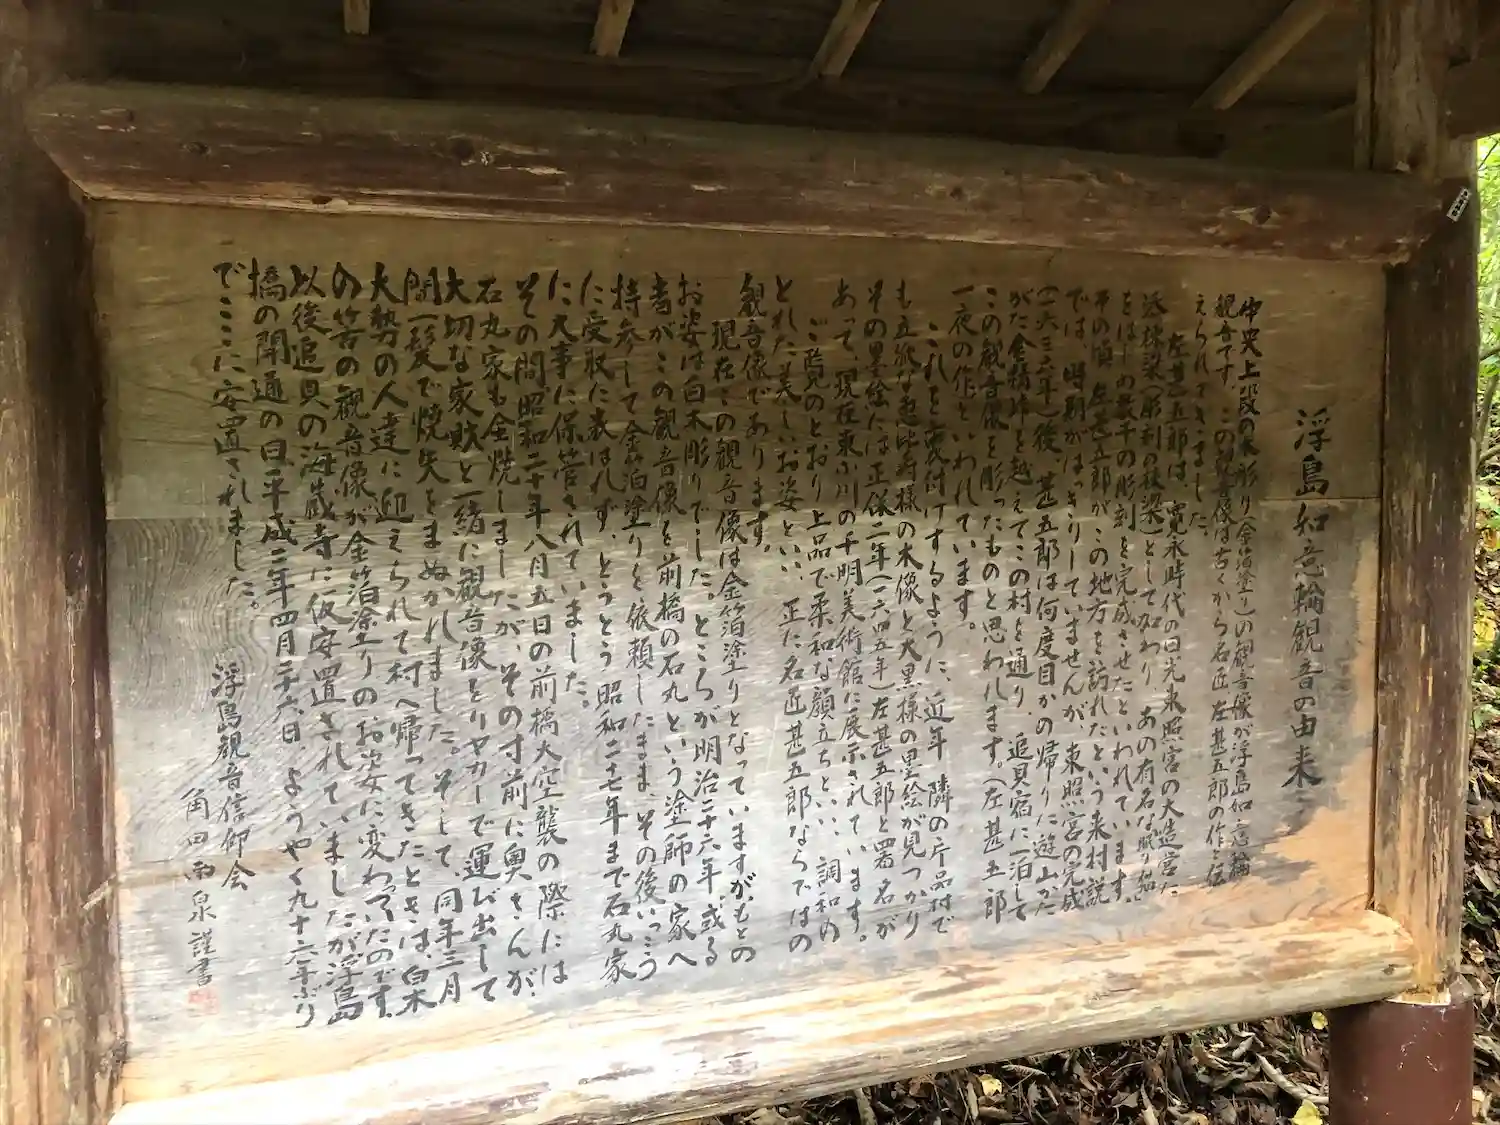 浮島如意輪観音の由来
中央上段の木彫り(金箔塗り)の観音像が浮島如意輪
観音です。この観音像は古くから名匠左甚五郎の作と伝
えられてきました。
左甚五郎は、寛永時代の日光東照宮の大造営に
添棟梁(彫刻の棟梁)として加わり、あの有名な「眠り猫」
をはじめ数千の彫刻を完成させたといわれています。
その頃、左甚五郎がこの地方を訪れたという来村説
では、時期がはっきりしていませんが、東照宮の完成
(一六三六年)後、甚五郎は何度目かの帰りに遊山かた
がた金精峠を越えてこの村を通り、追貝宿に一泊して
この観音像を彫ったものと思われます。(左甚五郎
一夜の作といわれています。
これを裏付けするように、近年、隣の片品村で
も立派な恵比寿様の木像と大黒様の墨絵が見つかり
その墨絵には正保二年(一六四五年)左甚五郎と署名が
あって、現在東小川の千明美術館に展示されています。
ご覧のとおり上品で柔和な顔立ちといい、調和の
とれた美しいお姿といい、正に名匠甚五郎ならではの
観音像であります。
現在この観音像は金箔塗りとなっていますが、もとの
お姿は白木彫りでした。ところが明治二十六年、或る
者がこの観音像を前橋の石丸という塗師の家へ
持参して金箔塗りを依頼したまま、その後いっこう
に受取に表はれず、とうとう昭和二十七年まで石丸家
に大事に保管されていました。
その間、昭和二十年八月五日の前橋大空襲の際には
石丸家も全焼しましたが、その寸前に奥さんが、
大切な家財と一緒に観音像をリヤカーで運び出して
間一髪で焼失をまぬかれました。そして、同年三月
大勢の人達に迎えられて村へ帰ってきたときは、白木
の筈の観音像が金箔塗りのお姿に変わっていたのです。
以後追貝の海蔵寺に仮安置されていましたが浮島
橋の開通の日、平成二年四月二十六日、ようやく九十六年ぶり
でここに安置されました。
浮島観音信仰会
角田 泉謹書